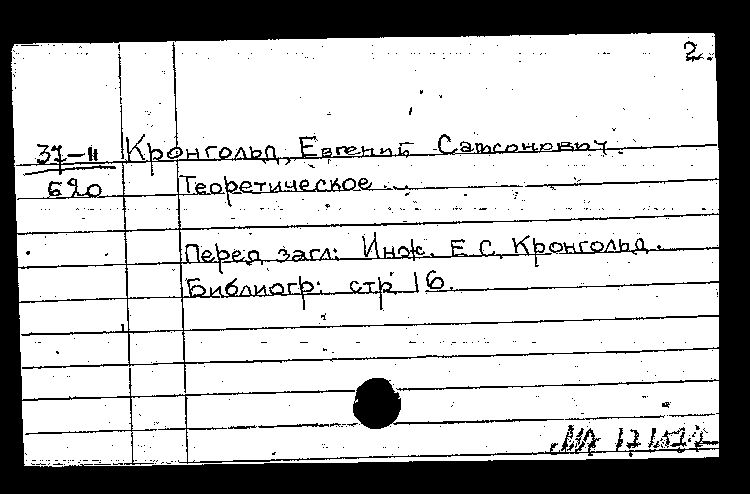 2.
37-II Кронгольд, Евгений Самсонович.
620 Теоретическое ...
Перед загл: Инж. Е. С. Кронгольд.
Библиогр: стр 16.